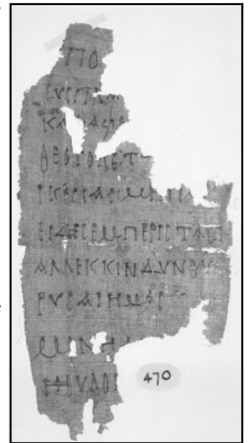 ΠΟ
ΕΥCΠΛΑ
ΚΑΤΑΦΕ
ΘΕΟΤΟΚΕΤ
ΙΚΕCΙΑCΜΗΠΑΡ
ΕΙΔΗCΕΜΠΕΡΙCΤΑC
ΑΛΛΕΚΚΙΝΔΥΝΟΥ
ΡΥCΑΙΗΜΑC
ΜΟΝΗ
470